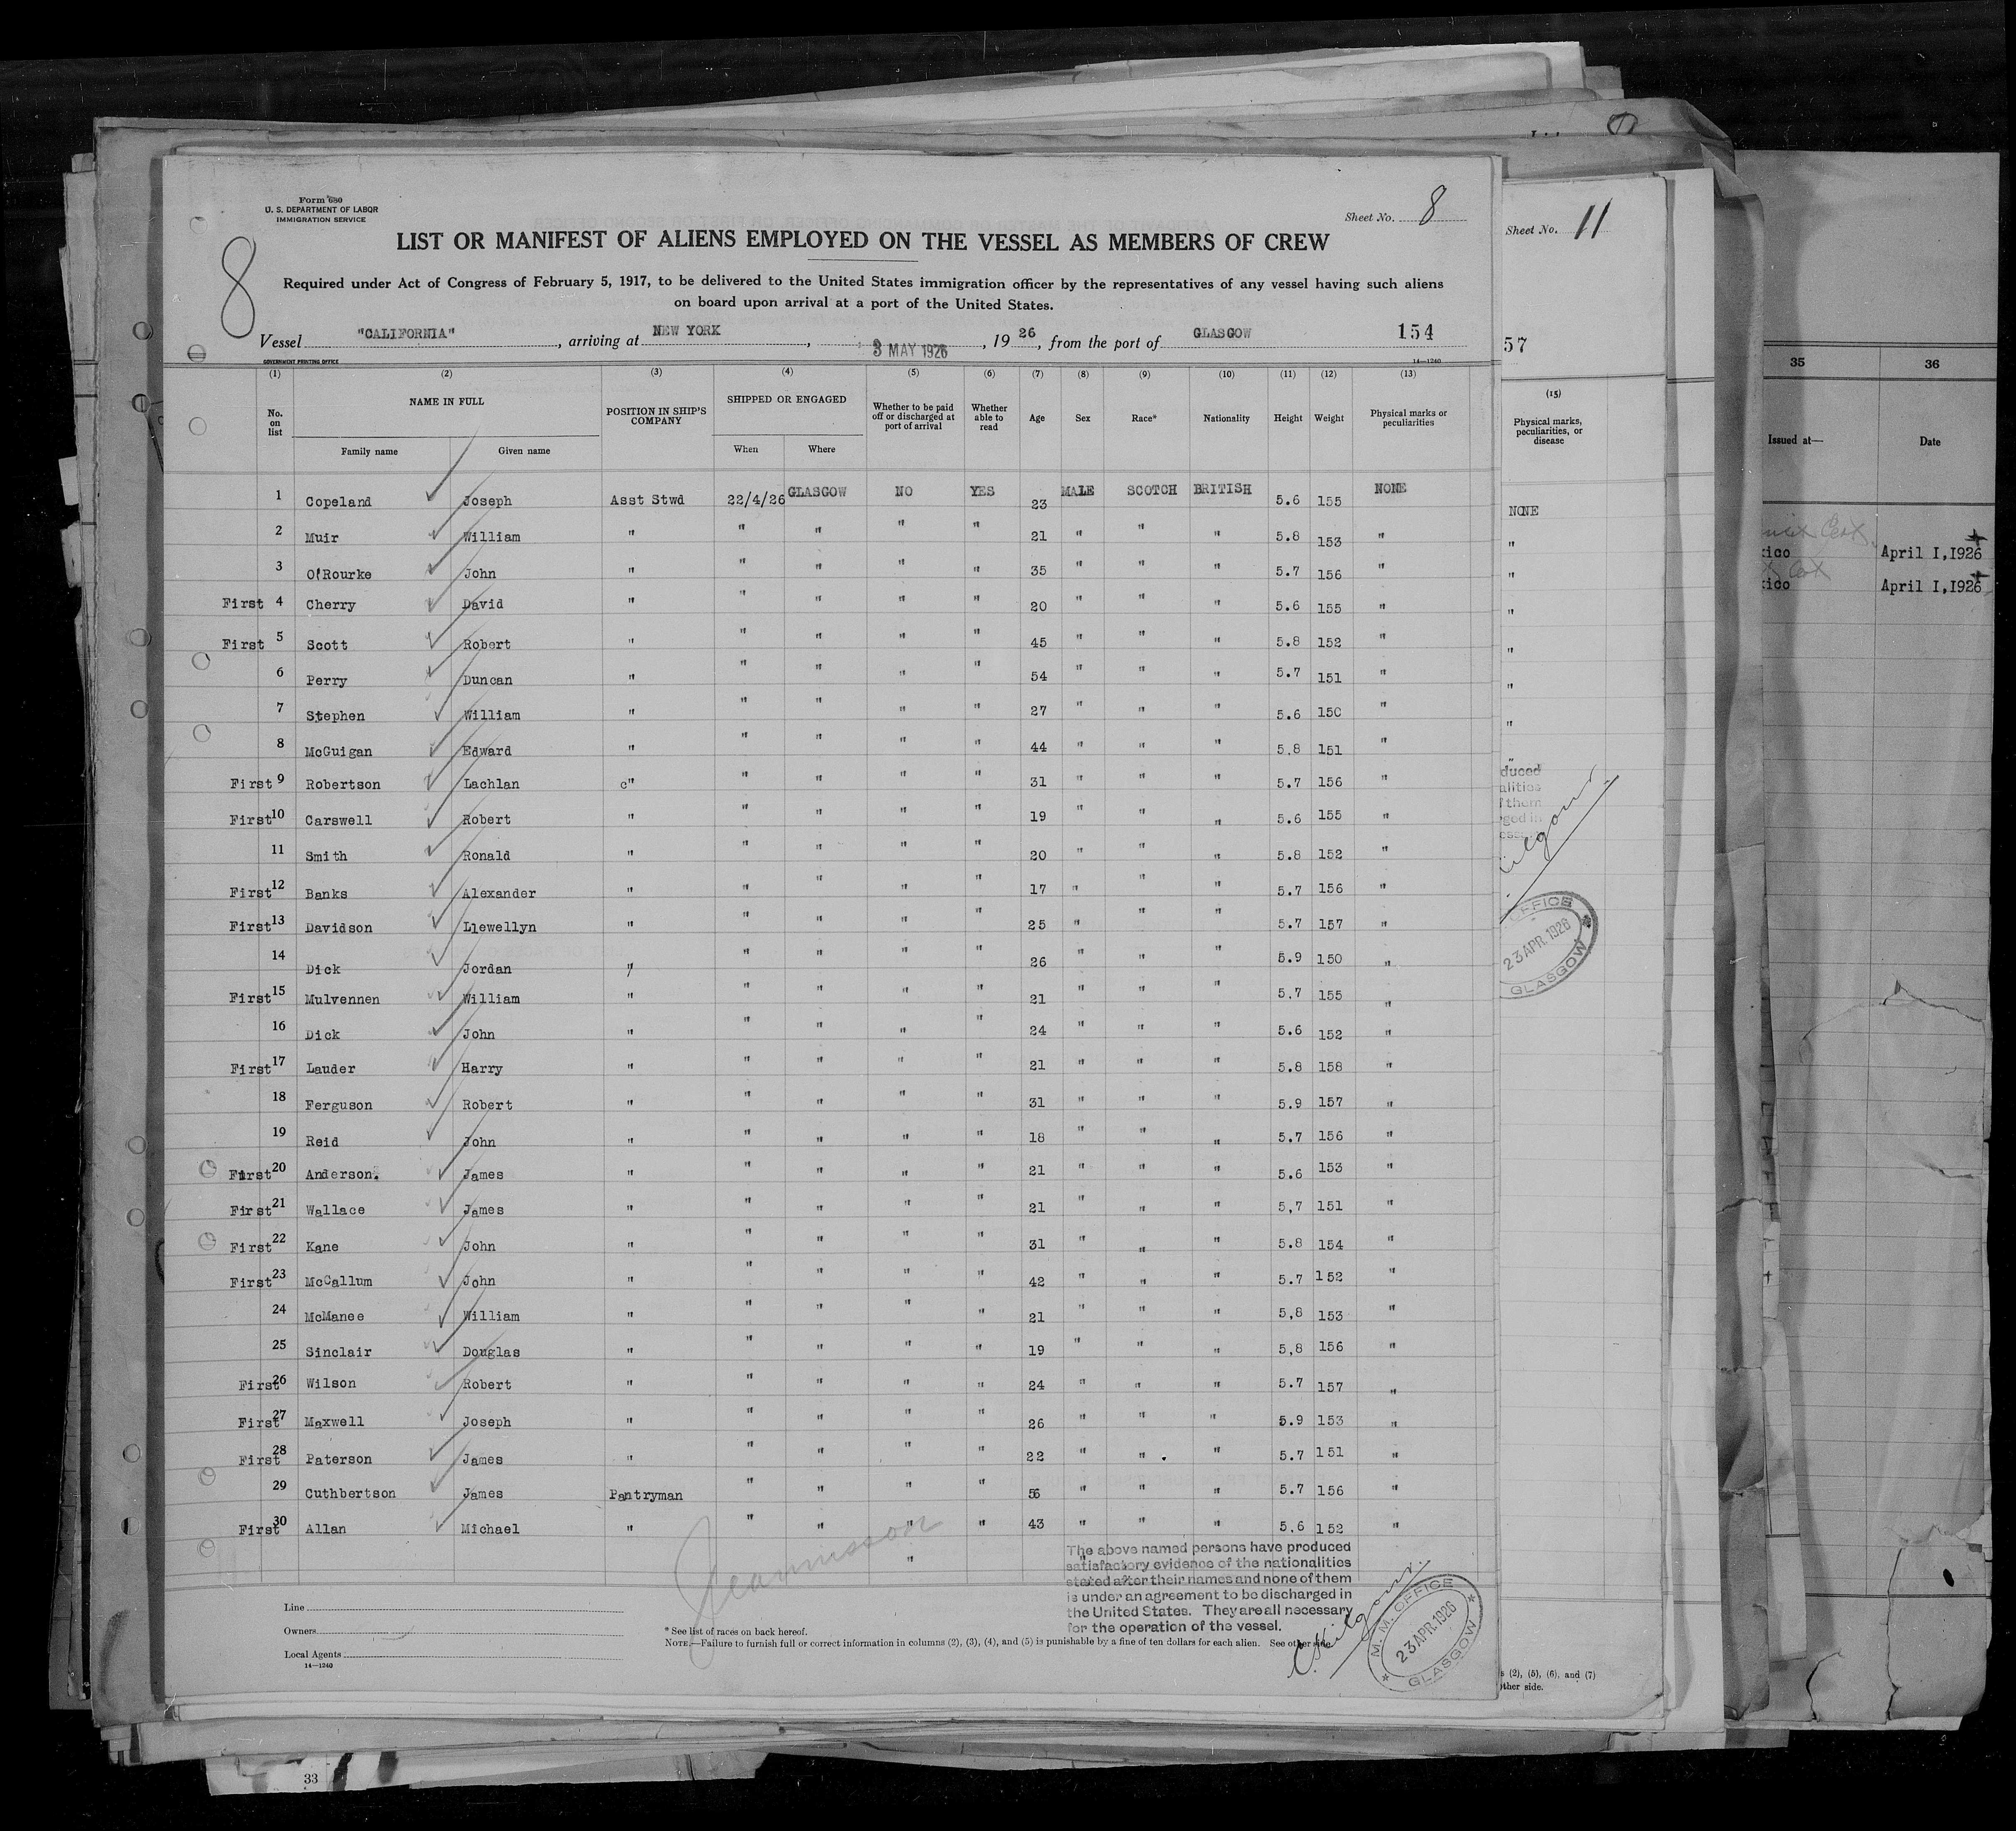 Form 680
U. S. DEPARTMENT OF LABOR
IMMIGRATION SERVICE
Sheet No. 8
8
LIST OR MANIFEST OF ALIENS EMPLOYED ON THE VESSEL AS MEMBERS OF CREW
Required under Act of Congress of February 5, 1917, to be delivered to the United States immigration officer by the representatives of any vessel having such aliens
on board upon arrival at a port of the United States.
Vessel "CALIFORNIA", arriving at NEW YORK, 3 MAY 1926, 1926, from the port of GLASGOW 154
GOVERNMENT PRINTING OFFICE 14—1240
(1) (2) (3) (4) (5) (6) (7) (8) (9) (10) (11) (12) (13)
No. on list NAME IN FULL Family name Given name POSITION IN SHIP'S COMPANY SHIPPED OR ENGAGED When Where Whether to be paid off or discharged at port of arrival Whether able to read Age Sex Race* Nationality Height Weight Physical marks or peculiarities
1 Copeland Joseph Asst Stwd 22/4/26 GLASGOW NO YES 23 MALE SCOTCH BRITISH 5.6 155 NONE
2 Muir William " " " " " 21 " " " 5.8 153 "
3 O'Rourke John " " " " " 35 " " " 5.7 156 "
First 4 Cherry David " " " " " 20 " " " 5.6 155 "
First 5 Scott Robert " " " " " 45 " " " 5.8 152 "
6 Perry Duncan " " " " " 54 " " " 5.7 151 "
7 Stephen William " " " " " 27 " " " 5.6 150 "
8 McGuigan Edward " " " " " 44 " " " 5.8 151 "
First 9 Robertson Lachlan c" " " " " 31 " " " 5.7 156 "
First 10 Carswell Robert " " " " " 19 " " " 5.6 155 "
11 Smith Ronald " " " " " 20 " " " 5.8 152 "
First 12 Banks Alexander " " " " " 17 " " " 5.7 156 "
First 13 Davidson Llewellyn " " " " " 25 " " " 5.7 157 "
14 Dick Jordan " " " " " 26 " " " 5.9 150 "
First 15 Mulvennen William " " " " " 21 " " " 5.7 155 "
16 Dick John " " " " " 24 " " " 5.6 152 "
First 17 Lauder Harry " " " " " 21 " " " 5.8 158 "
18 Ferguson Robert " " " " " 31 " " " 5.9 157 "
19 Reid John " " " " " 18 " " " 5.7 156 "
First 20 Anderson. James " " " " " 21 " " " 5.6 153 "
First 21 Wallace James " " " " " 21 " " " 5,7 151 "
First 22 Kane John " " " " " 31 " " " 5.8 154 "
First 23 McCallum John " " " " " 42 " " " 5.7 152 "
24 McManee William " " " " " 21 " " " 5,8 153 "
25 Sinclair Douglas " " " " " 19 " " " 5,8 156 "
First 26 Wilson Robert " " " " " 24 " " " 5.7 157 "
First 27 Maxwell Joseph " " " " " 26 " " " 5.9 153 "
First 28 Paterson James " " " " " 22 " " " 5.7 151 "
29 Cuthbertson James Pantryman " " " " 56 " " " 5.7 156 "
First 30 Allan Michael " " " " " 43 " " " 5.6 152 "
"
The above named persons have produced
satisfactory evidence of the nationalities
stated after their names and none of them
is under an agreement to be discharged in
the United States. They are all necessary
for the operation of the vessel.
M. M. OFFICE
23 APR. 1926
GLASGOW
Line
Owners
Local Agents
14—1240
* See list of races on back hereof.
NOTE.—Failure to furnish full or correct information in columns (2), (3), (4), and (5) is punishable by a fine of ten dollars for each alien. See other side.
Sheet No. 11
57
(15)
Physical marks, peculiarities, or disease
NONE
"
"
"
"
"
"
"
duced
alities
them
ged in
OFFICE
23 APR. 1926
GLASGOW
(2), (5), (6), and (7)
other side.
35 36
Issued at— Date
ico April I,1926
ico April I,1926
33